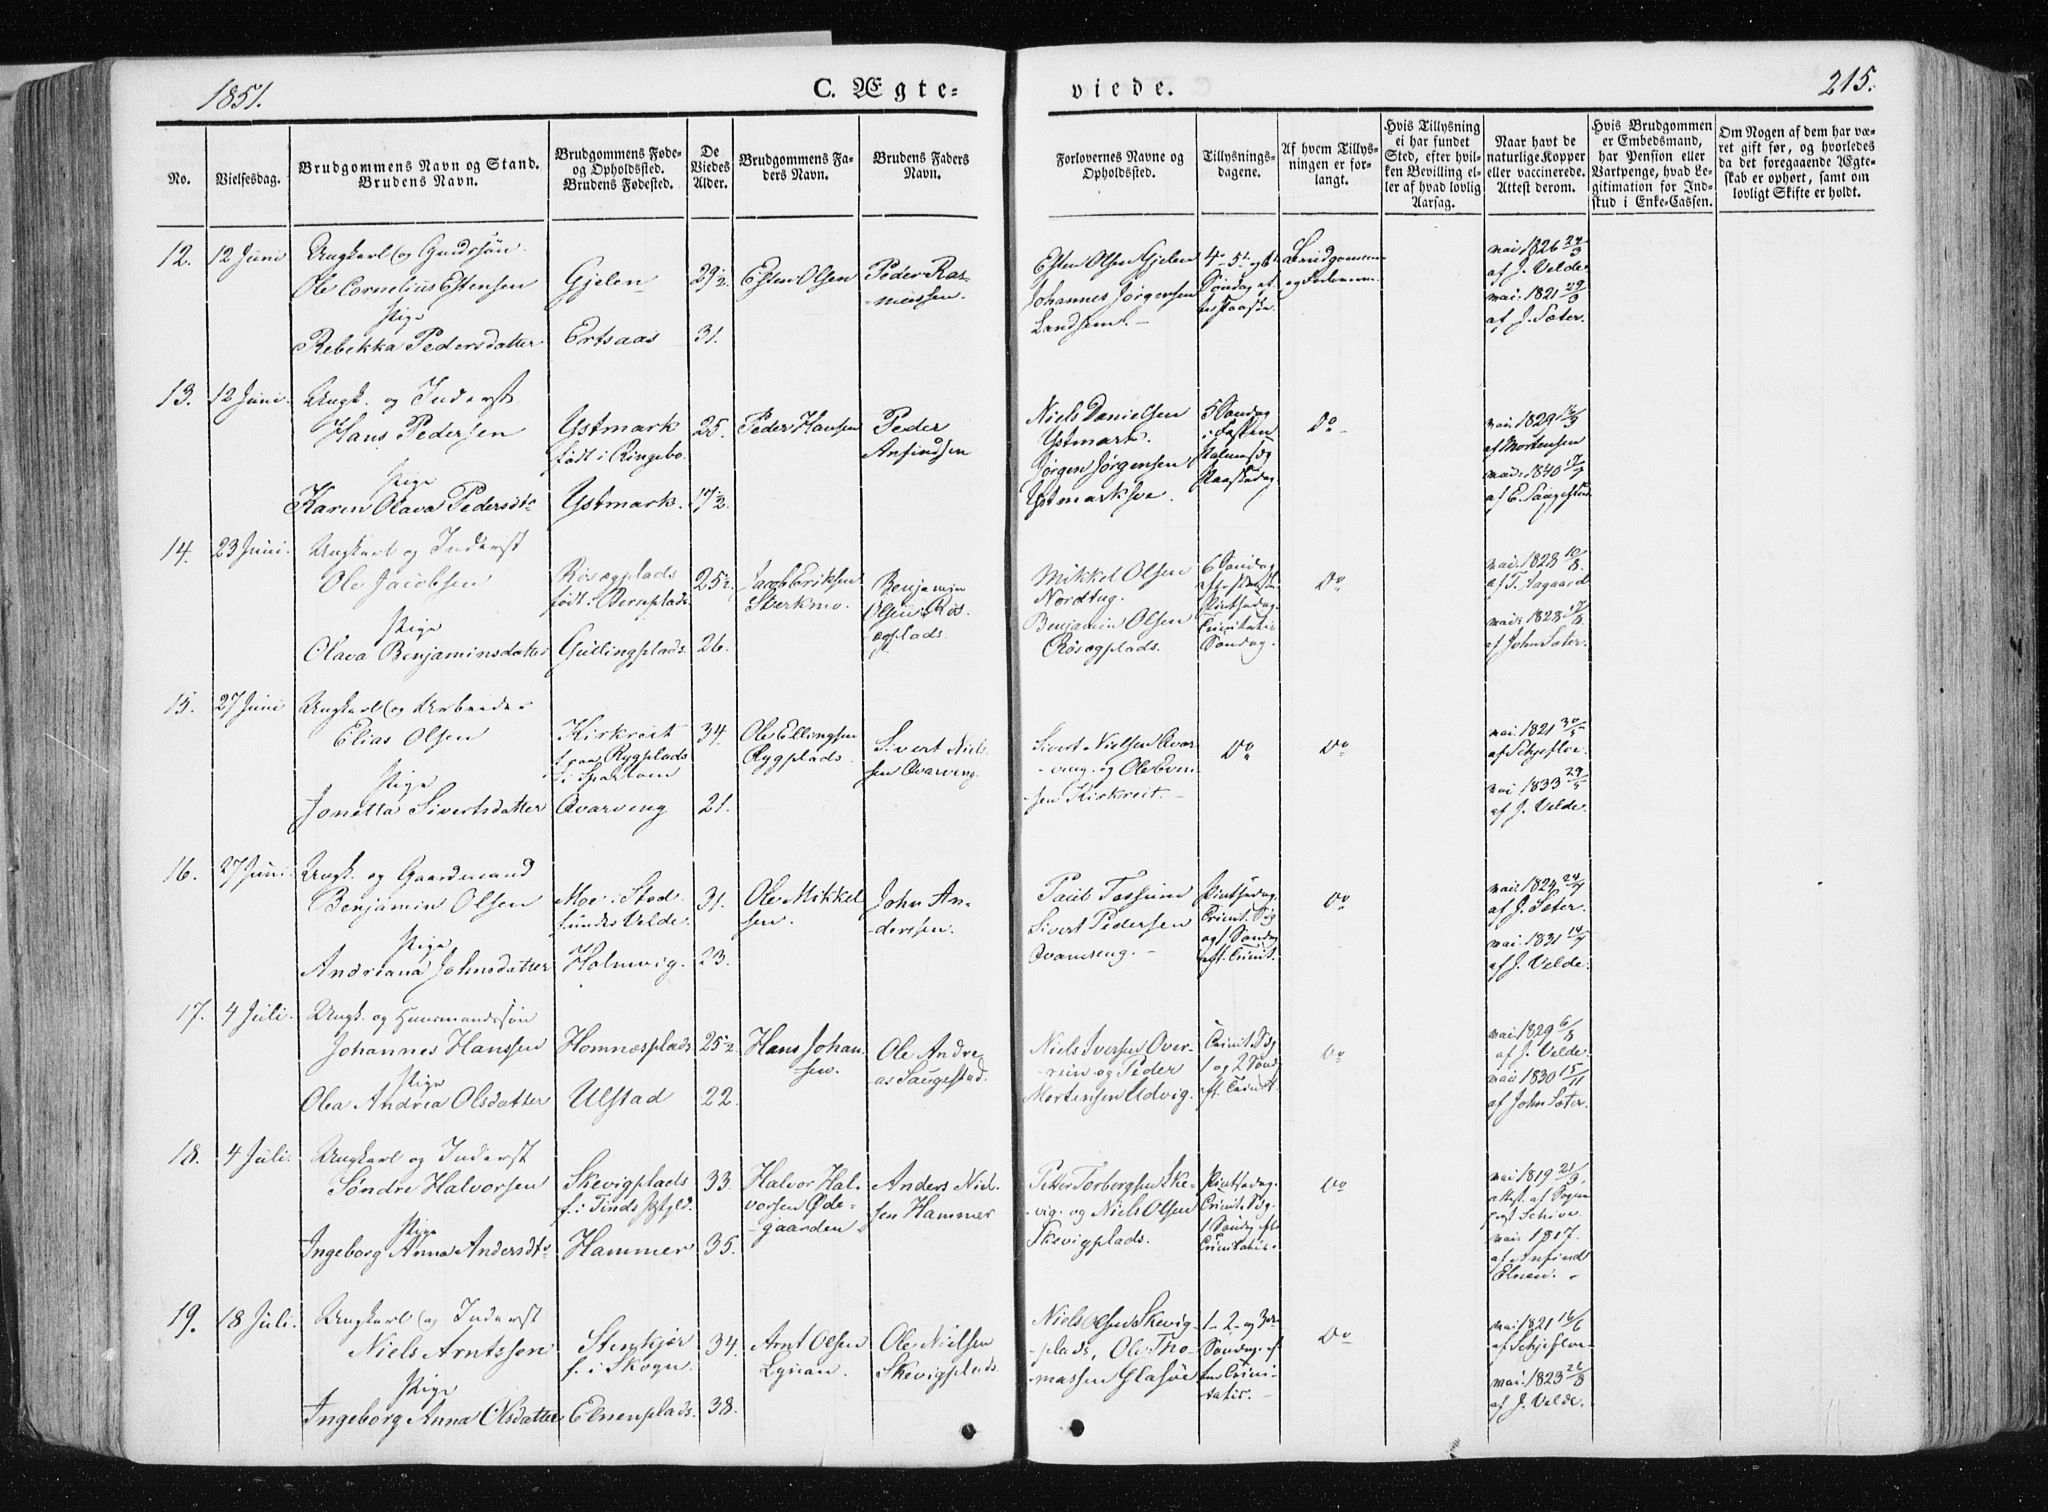 1851.
C. Ægte-
viede.
215.
No.
Vielsesdag.
Brudgommens Navn og Stand.
Brudens Navn.
Brudgommens Føde-
og Opholdssted.
Brudens Fødested.
De
Viedes
Alder.
Brudgommens Fa-
ders Navn.
Brudens Faders
Navn.
Forlovernes Navne og
Opholdssted.
Tillysnings-
dagene.
Af hvem Tillys-
ningen er for-
langt.
Hvis Tillysning
ei har fundet
Sted, efter hvil-
ken Bevilling el-
ler af hvad lovlig
Aarsag.
Naar havt de
naturlige Kopper
eller vaccinerede.
Attest derom.
Hvis Brudgommen
er Embedsmand,
har Pension eller
Vartpenge, hvad Le-
gitimation for Ind-
skud i Enke-Cassen.
Om Nogen af dem har væ-
ret gift før, og hvorledes
da det foregaaende Ægte-
skab er ophørt, samt om
lovligt Skifte er holdt.
12.
12 Juni
Ungkarl og Gaardssøn
Ole Cornelius Estensen
Pige
Rebekka Pedersdatter
Gjelen
Ertsaas
29½
31.
Esten Olsen
Peder Ras-
mussen.
Esten Olsen Gjelen
Johannes Jørgensen
Landsem.
4- 5t og 6t
Søndag ef-
ter Paaske
Brudgommen
og Forloverne
vac. 1826 24/3
af J. Velde.
vac. 1821 29/3
af J. Sæter.
13.
12 Juni.
Ungk. og Inderst
Hans Pedersen
Pige
Karen Olava Pedersdtr
Ystmark
født i Ringebo.
Ystmark.
25.
17½
Peder Hansen
Peder
Anfindsen
Niels Danielsen
Ystmark.
Jørgen Jørgensen
Ystmarksve.
5 Søndag
i Fasten
Palmesdg
Paaskedag
Do
vac. 1829 16/3
af Mortensen
vac. 1840 17/7
af E. Saugestad
14.
23 Juni.
Ungkarl og Inderst
Ole Jacobsen
Pige
Olava Benjaminsdatter
Røsegplads
født i
Gullingplads.
25½
26.
Jacob Eriksen
Sterkmo.
Benjamin
Olsen Røs
egplads.
Mikkel Olsen
Nordtug.
Benjamin Olsen
Røsegplads.
6 Søndag
Pintsedag
Trinitatis
Søndag.
Do
vac. 1828 10/8.
af T. Aagaard
vac. 1828 17/8
af John Sæter.
15.
27 Juni
Ungkarl og Arbeider
Elias Olsen
Pige
Jonetta Sivertsdatter
Kirkreit
f. paa Rygplads
i Sparboen
Qvarveng
34.
21.
Ole Ellingsen
Rygplads.
Sivert Niel-
sen Qvarveng.
Sivert Nielsen Qvar
veng. og Ole Even
sen Kirkreit.
Do
Do
vac. 1821 30/5
af Schjeflve.
vac. 1833 29/5
af J. Velde.
16.
27 Juni.
Ungk. og Gaardmand
Benjamin Olsen
Pige
Andriana Johnsdatter
Moe i Stod
under Velde.
Holmvig.
31.
23.
Ole Mikkel
sen.
John An-
dersen.
Paul Fossum
Sivert Pedersen
Qvamseng.
Pintsedag.
Trinit. Sdg
og 1 Søndag
eft. Trinit.
Do
vac. 1824 24/7
af J. Sæter.
vac. 1831 14/7
af J. Velde.
17.
4 Juli.
Ungk. og Huusmandssøn
Johannes Hanssen
Pige
Olea Andrea Olsdatter
Homnæsplads
Ulstad
25½
22.
Hans Johan-
sen.
Ole Andre
as Saugestad.
Niels Iversen Over-
rein og Peder
Mortensen Udvig.
Trinit. Sdg
1 og 2 Sønd
eft. Trinit.
Do
vac. 1829 6/8
af J. Velde
vac. 1830 15/11
af John Sæter.
18.
4 Juli.
Ungkarl og Inderst
Søndre Halvorsen
Pige
Ingeborg Anna Andersdtr
Skevigplads
f. i Tinds Pgjld.
Hammer
33.
35.
Halvor Hal-
vorsen Øde-
gaarden
Anders Niel-
sen Hammer
Petter Torbergsen Ske-
vig. og Niels Olsen
Skevigplads.
Pintsedag.
Trinit. Sdg.
1 Søndag eft.
Trinitatis.
Do
vac. 1819 21/3.
attest. af Sogne
prest Schive.
vac. 1817.
af Anfind
Elnen.
19.
18 Juli.
Ungkarl og Inderst
Niels Arntssen
Pige
Ingeborg Anna Olsdatter
Stenkjær
f. i Skogn.
Elnenplads.
34.
38.
Arnt Olsen
Lynan.
Ole Nielsen
Skevigplads
Niels Olsen Skevig
plads, Ole Tho-
massen Glasøe
1- 2- og 3die
Søndag ef
ter Trini-
tatis.
Do
vac. 1821 16/6
af Schjeflve
vac. 1823 26/8
af J. Velde.